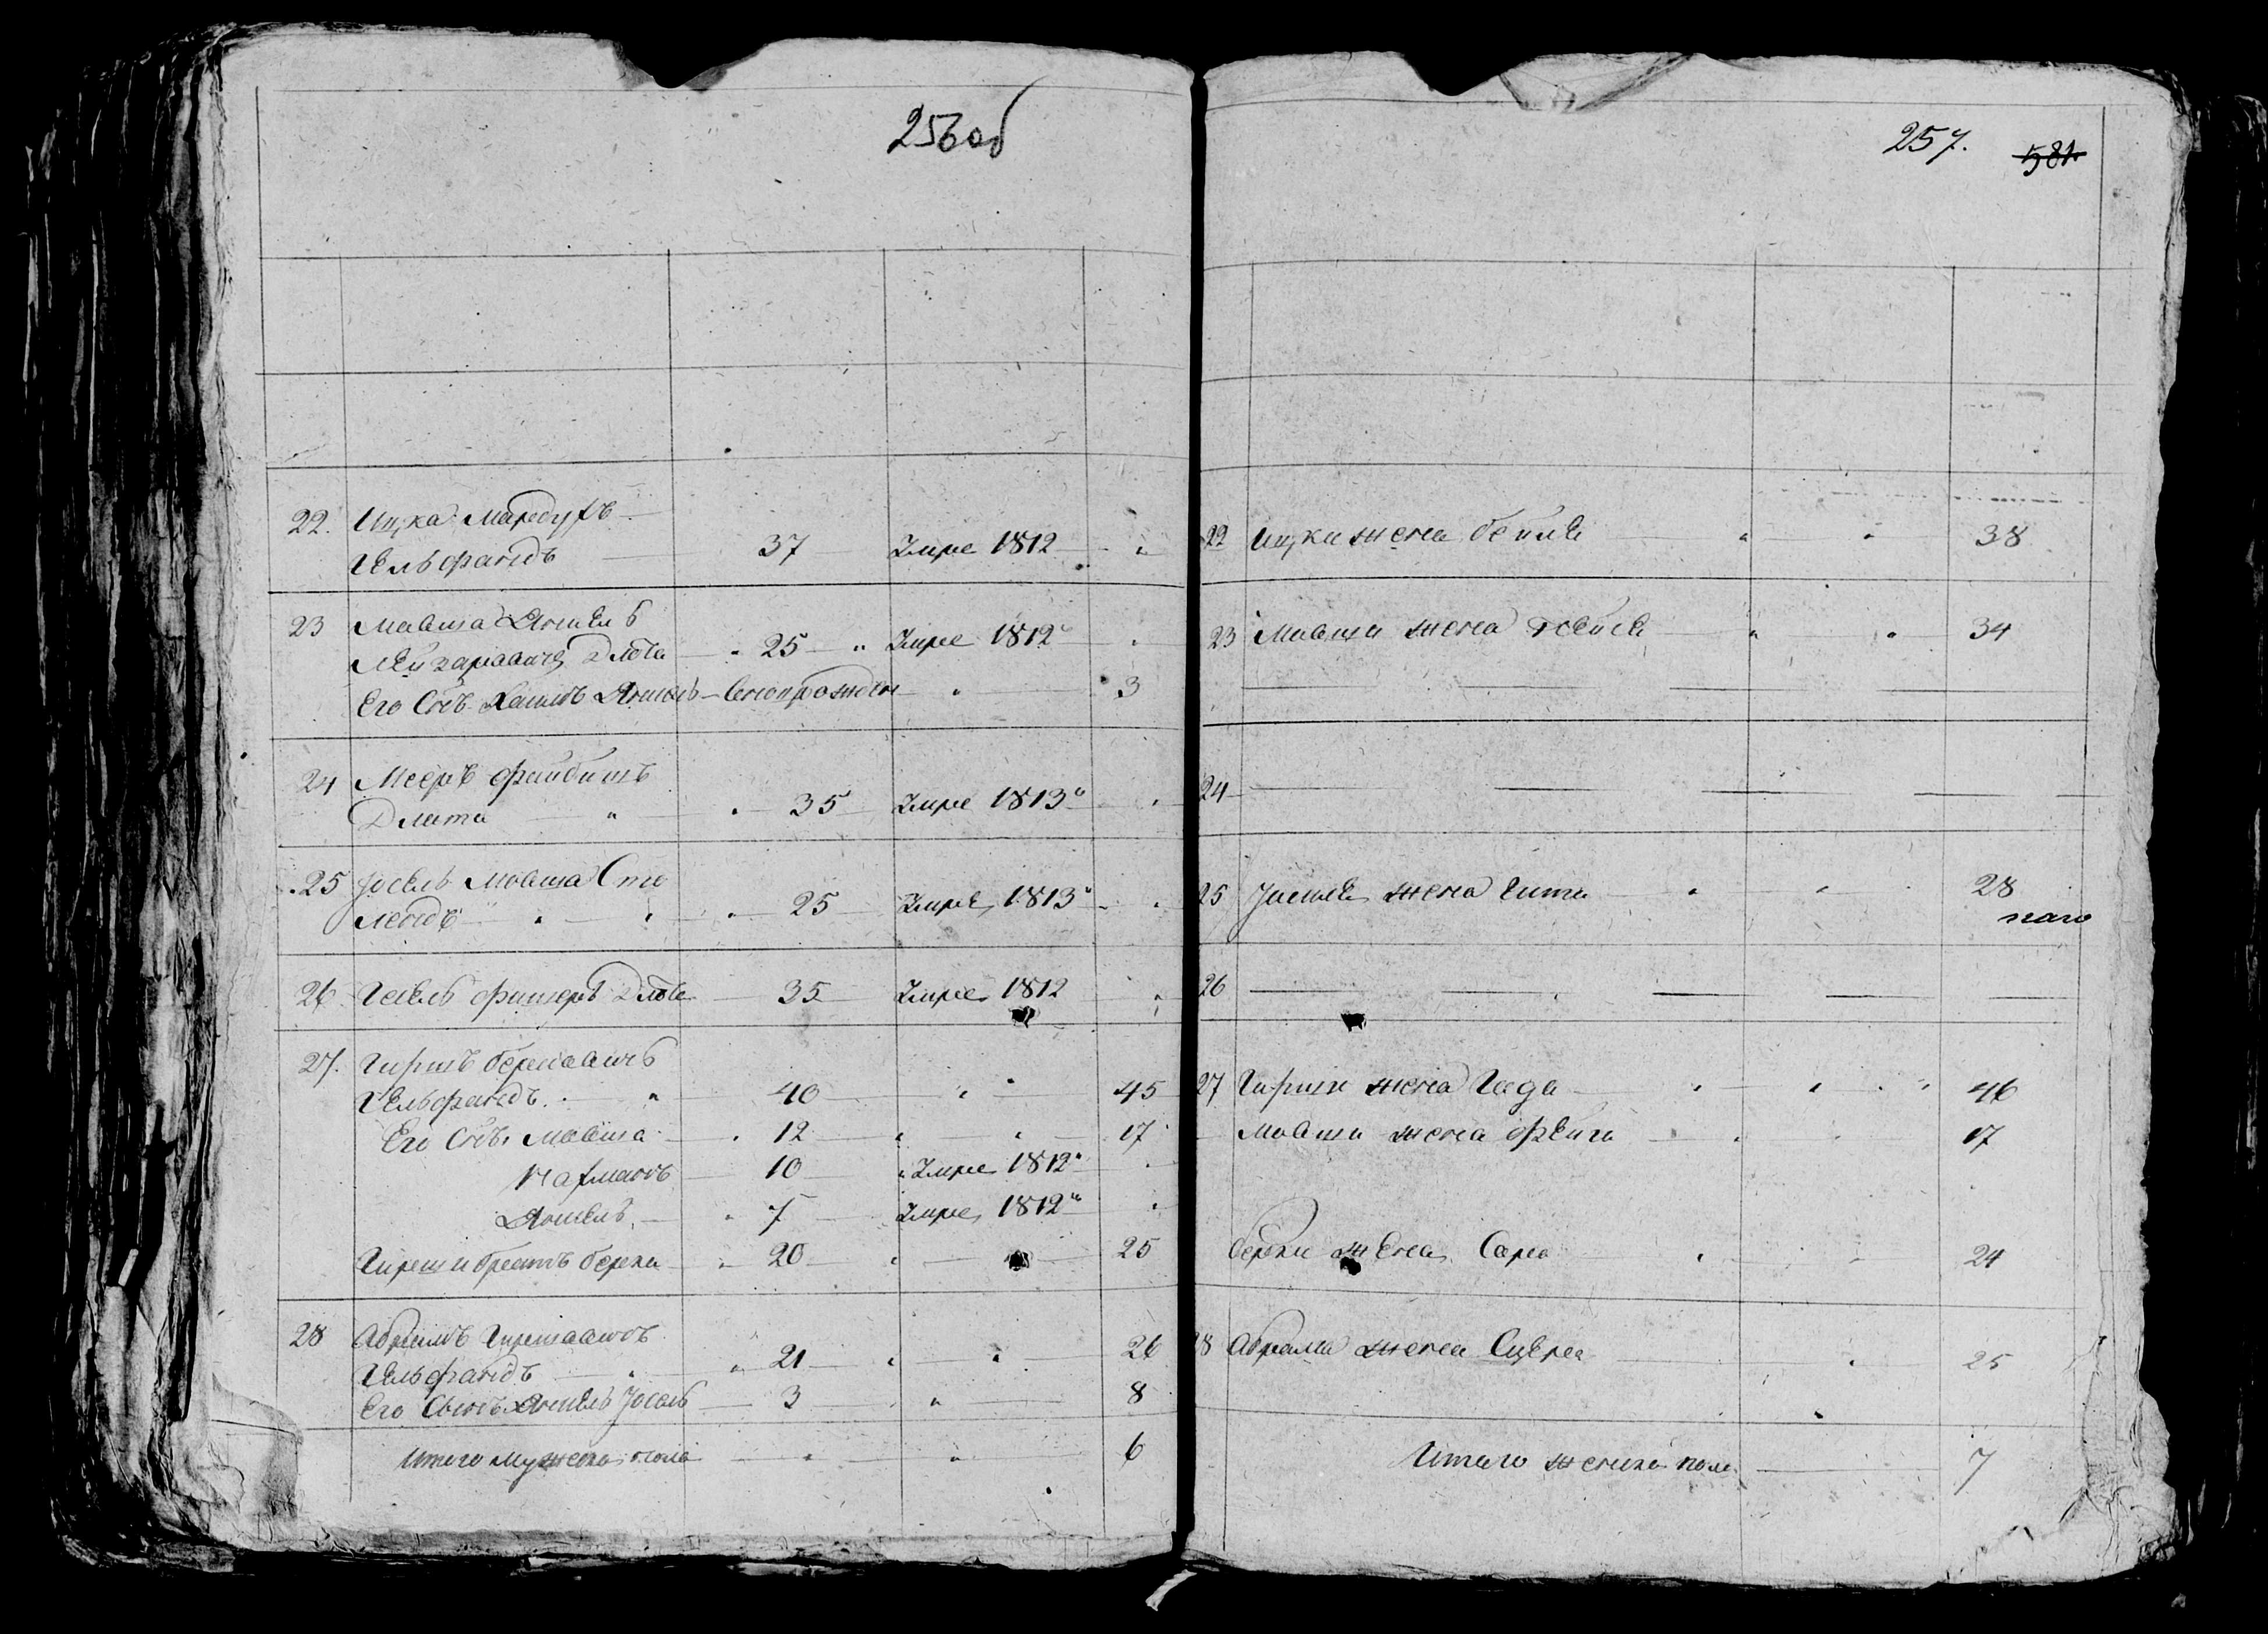 256об
22. Ицка Мардухъ
Гельфандъ 37 Умре 1812 "
23 Мовша Аншель
Лейзаровичъ Длота " 25 " Умре 1812 "
Его Сынъ Хаимъ Аншель Вновьрожден " 3
24 Мееръ Файбишъ
Длота " " 35 Умре 1813 "
25 Іосель Мовша Сто
" " " 25 Умре 1813 "
26 Фишеръ Длота 35 Умре 1812 "
27. Гиршъ Берковичъ
Гельфандъ " 40 " " 45
Его Сынъ Мовша " 12 " " 17
Нахманъ 10 Умре 1812 "
Аншель " 7 Умре 1812 "
Гирши братъ Берка " 20 " 25
28 Абрамъ Гиршовичъ
Гельфандъ " 21 " " 26
Его Сынъ Аншель Іосель 3 " 8
Итого мужеска пола " " 6
257. 581
22 Ицки жена Бейля " " 38
23 Мовши жена " " 34
24
25 Іоселя жена Гита " " 28
26
27 Гирши жена Года " " " 46
Мовши жена Фейга " " 17
Берки жена Сара " " 24
28 Абрама жена " 25
Итого женска пола 7